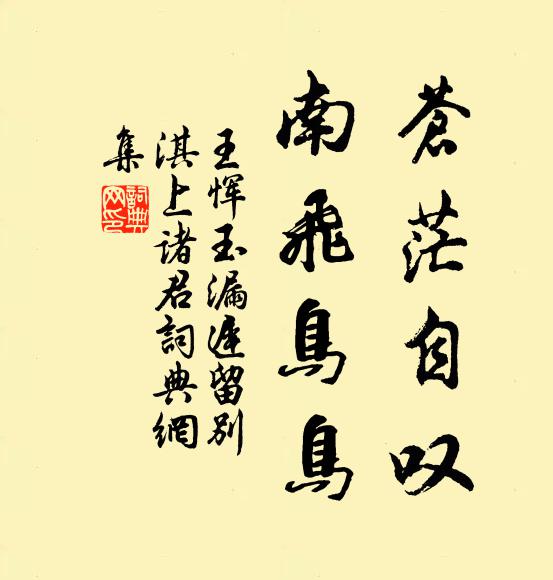 蒼茫自叹
南飛鳥鳥
王惲玉漏遲留别
淇上诸君詞典網
集
詞典网印